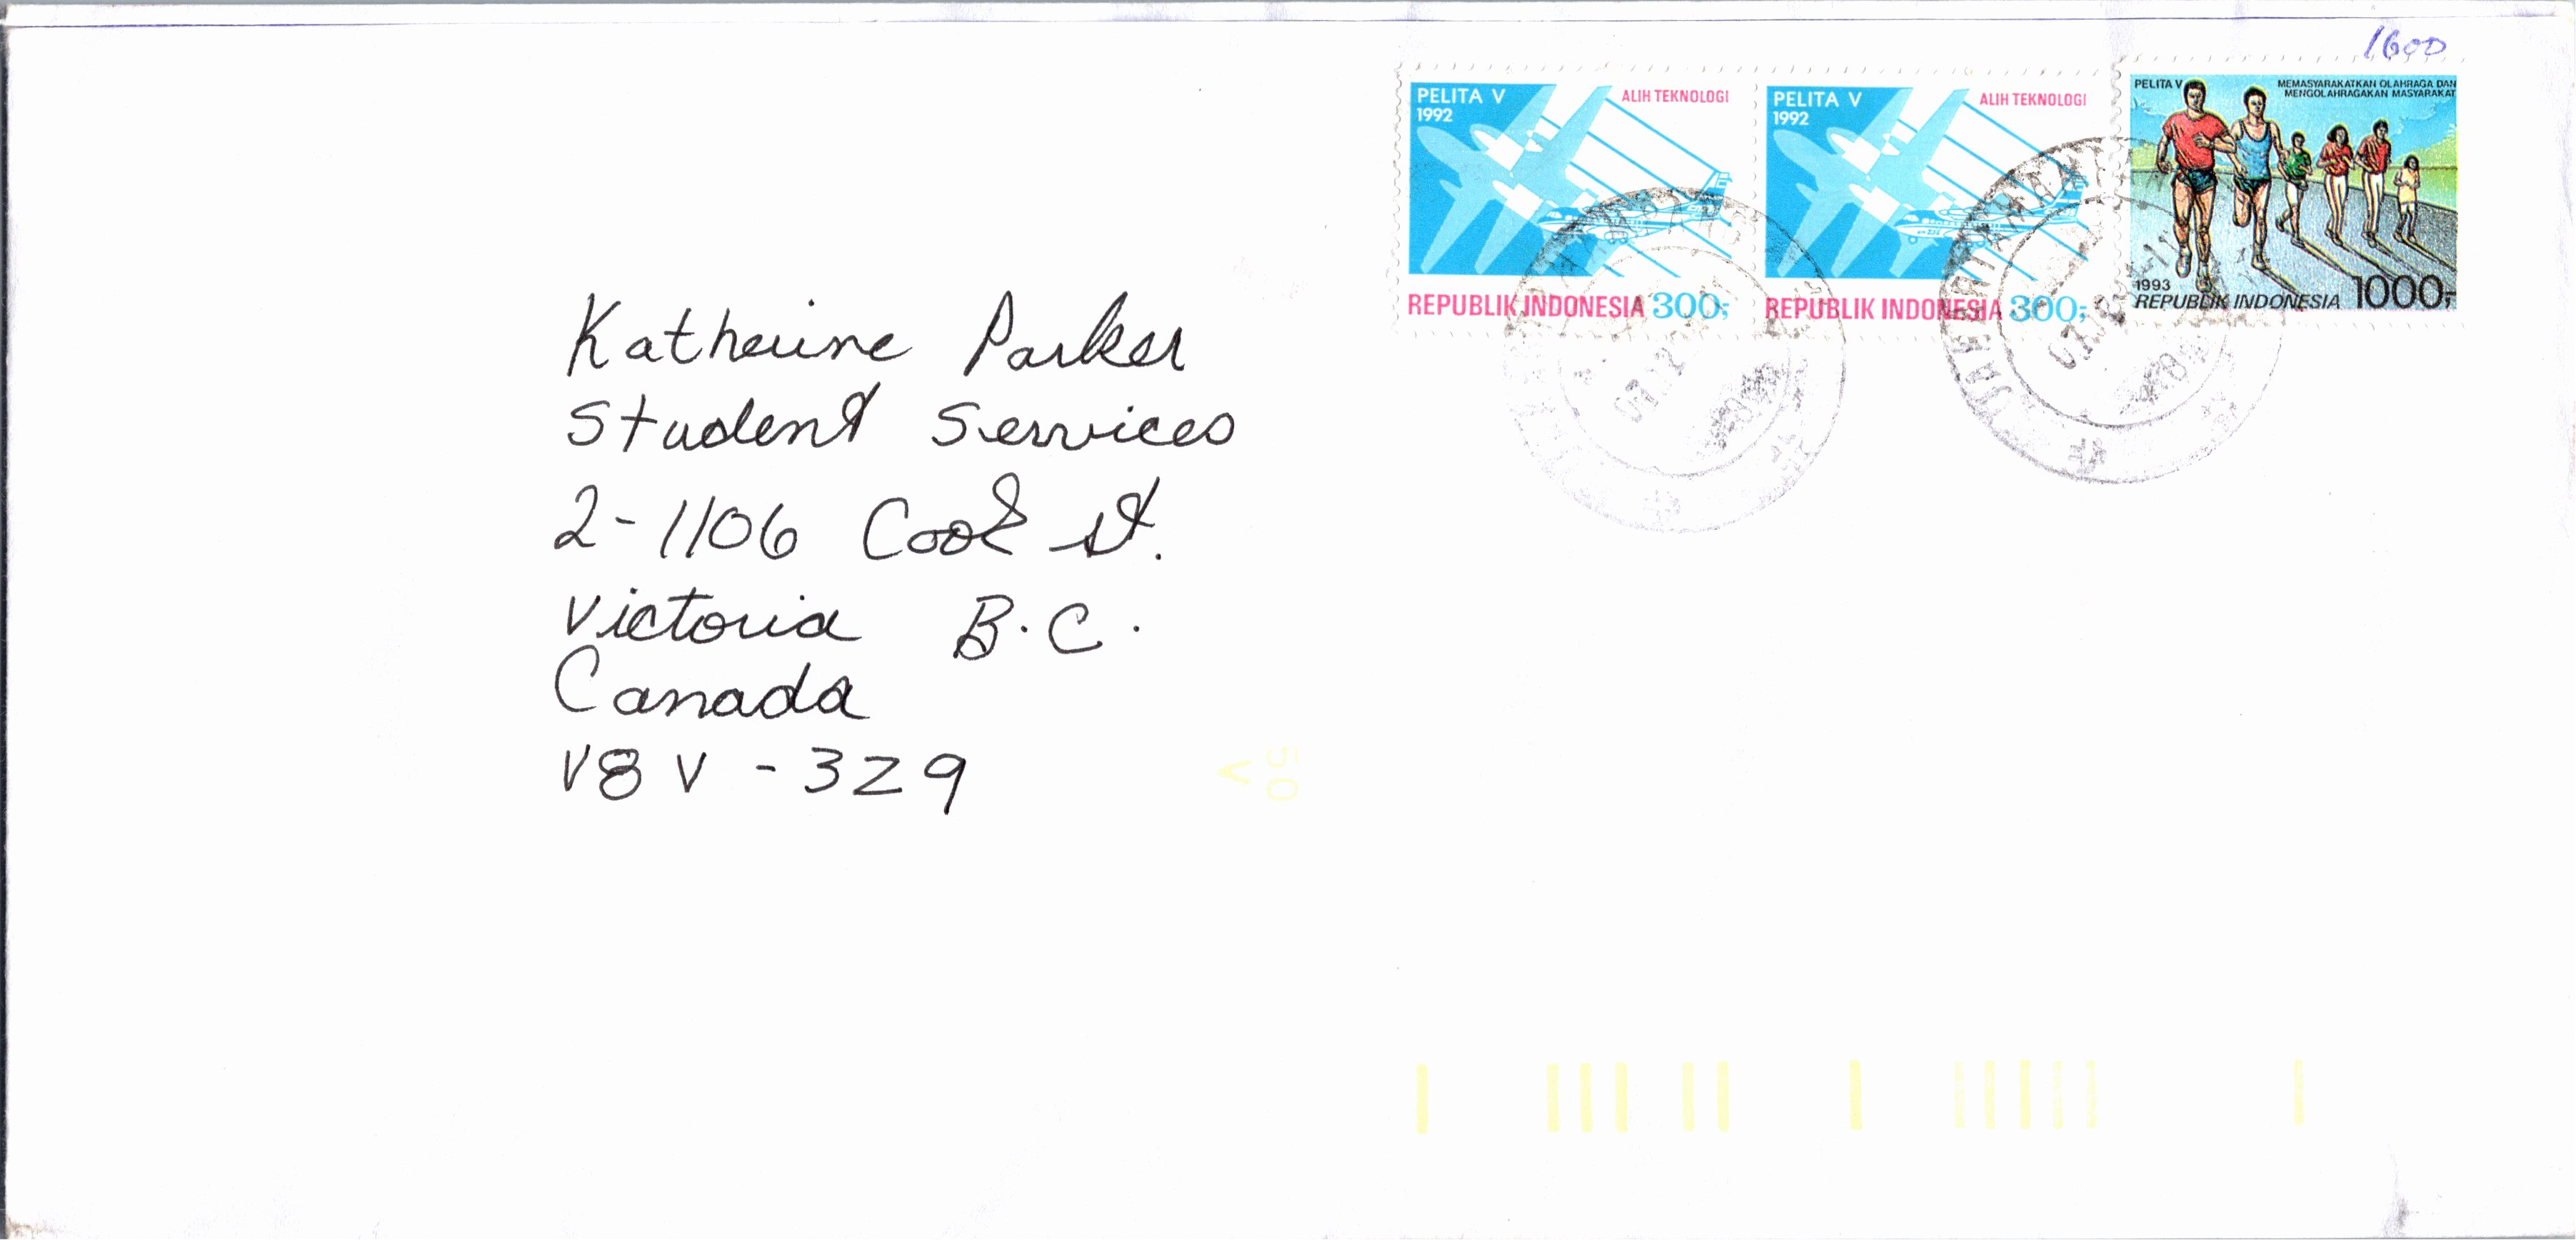 1600
PELITA V
1992
ALIH TEKNOLOGI
REPUBLIK INDONESIA 300,-
PELITA V
1992
ALIH TEKNOLOGI
REPUBLIK INDONESIA 300,-
PELITA V
MEMASYARAKATKAN OLAHRAGA DAN
MENGOLAHRAGAKAN MASYARAKAT
1993
REPUBLIK INDONESIA 1000,-
Katherine Parker
Student Services
2-1106 Cook St.
Victoria B.C.
Canada
V8V-3Z9
50
V